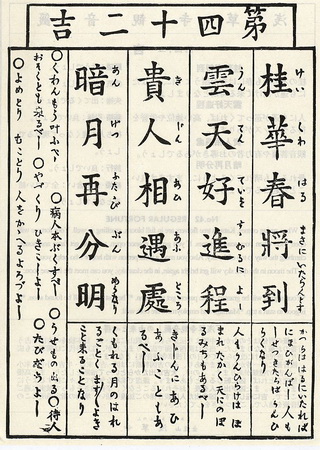 第四十二吉
桂華春將到
けい くわ はる まさに いたらんとす
かつらははるにいたれば
にほひがんばし 人も
一せつきたらばうんひ
らくなり
雲天好進程
うん てん
人もうんひらけはほ
まれたかく天にのぼ
るみちもあるべし
貴人相遇處
き じん あひ あふ ところ
きにんにあひ
あふこともあ
るべし
暗月再分明
あん げつ ふたゝび ぶん
くもれる月のはれ
るごとく よき
こと来ることなり
○くわんもう叶ふべし ○病人本ぶくすべし ○うせもの出る ○待人
おそくとも来るべし ○やづくり ひきこしよし ○たびだちよし
○よめとり むことり 人をかゝへるよろづよし